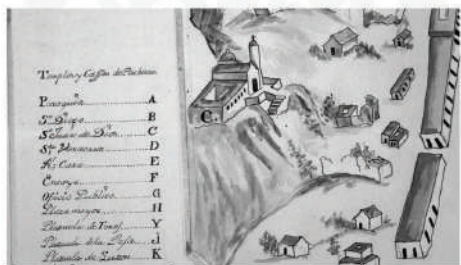 Templos y Cassas de Pachuca
Parroquia A
Sn. Diego B
S. Juan de Dios C
D
Rs. Caxa E
Ensaye F
Oficio Publico G
Plaza mayor H
Plazuela de Toros Y
Plazuela de la J
Plazuela de K
C